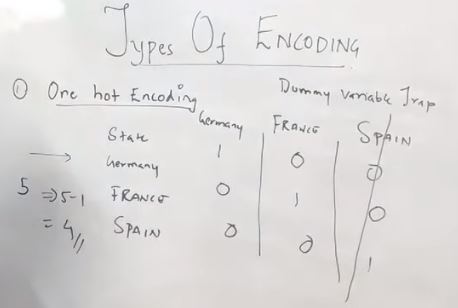 Types Of ENCODING
① One hot Encoding Dummy variable Trap
Germany FRANCE SPAIN
State
Germany 1 0 0
5 ⇒ 5-1 FRANCE 0 1 0
= 4 SPAIN 0 0 1